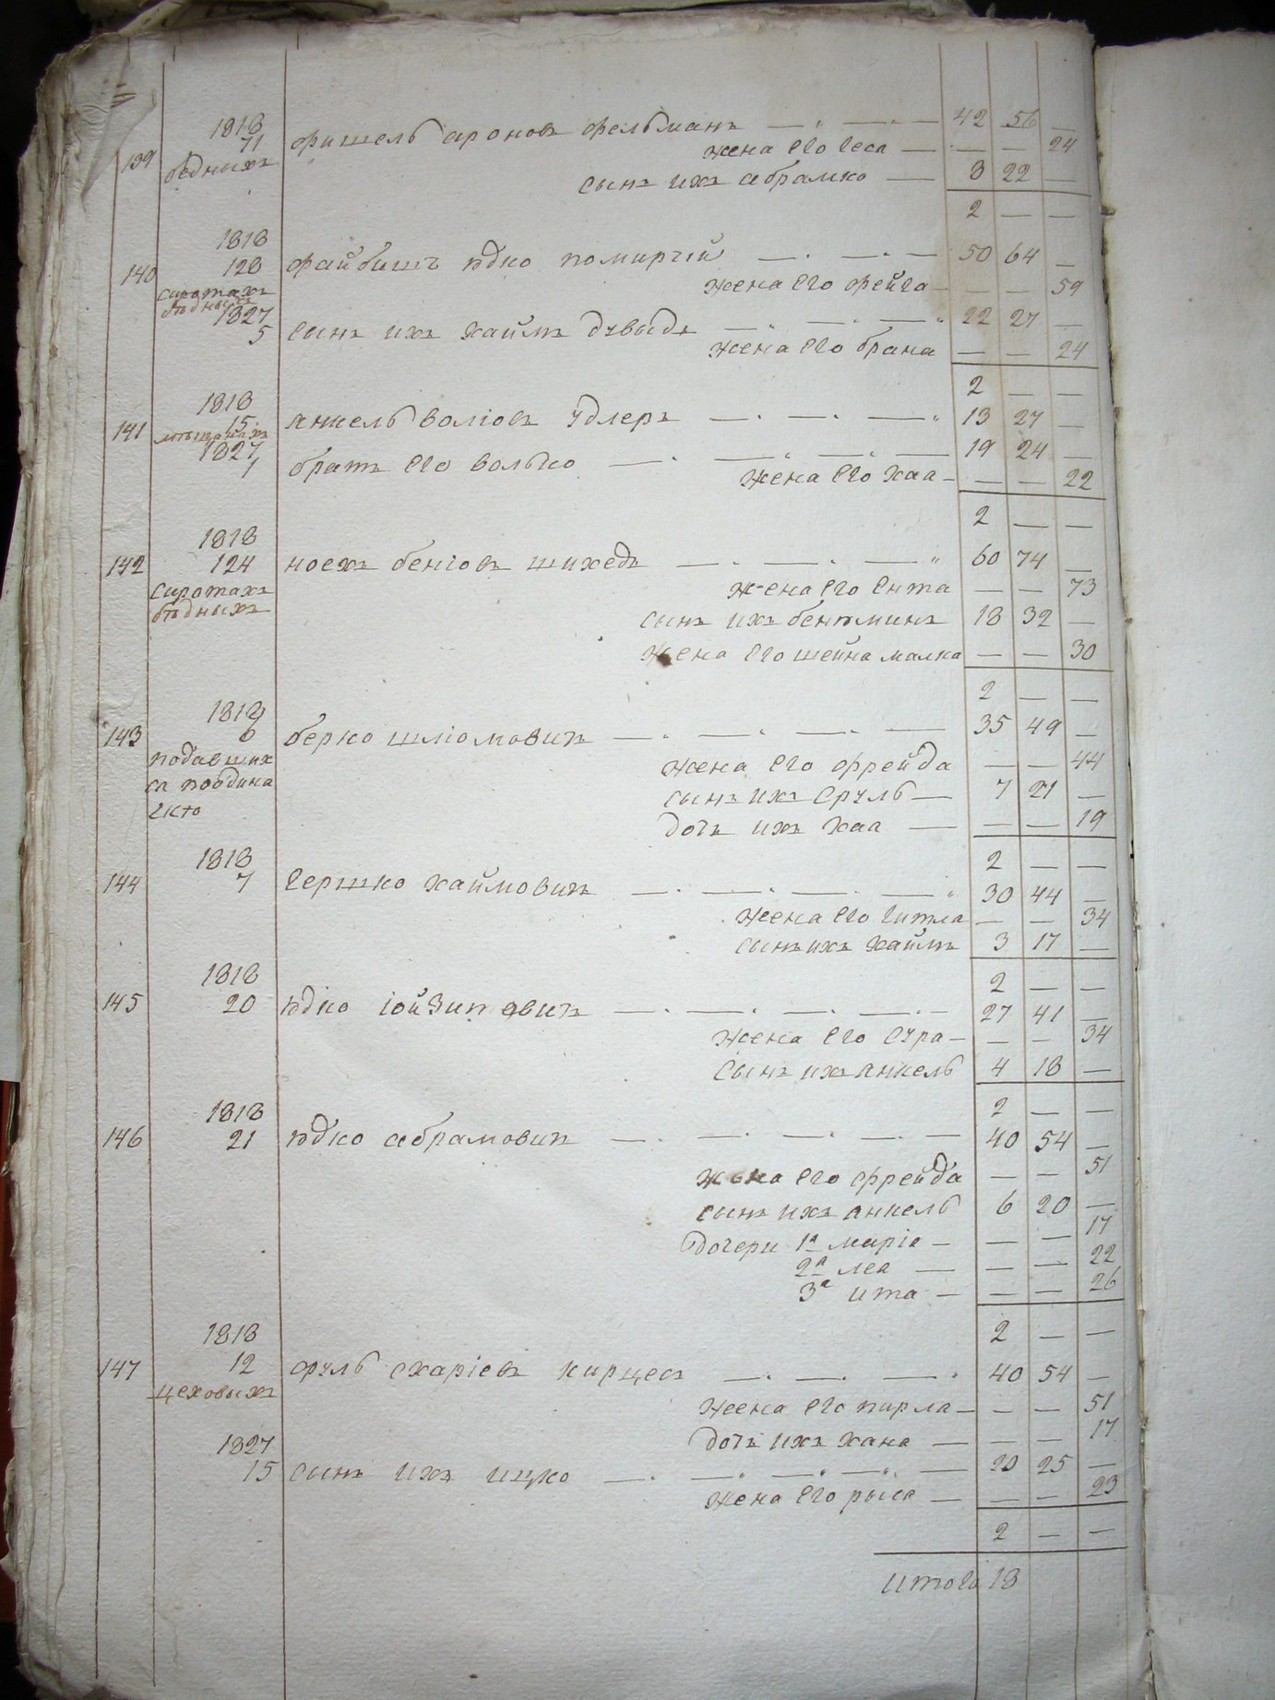 1818
71
139 бедныхъ
Фишель Ароновъ Фельманъ — — — 42 56 —
жена его Геса — — — 24
сынъ ихъ Абрамко — 8 22 —
2 — —
1818
140 128 Файбишъ Юдко Помирчій — — — 50 64 —
сиротахъ
бѣдныхъ
жена его Фейга — — — 59
1827
5 сынъ ихъ Хаимъ Дувыдъ — — — 22 27 —
жена его Брана — — 24
2 — —
1818
141 15 Анкель Волiовъ Удлеръ — — — 13 27 —
1827
1 братъ его Волько — — — — 19 24 —
жена его Хаа — — — 22
2 — —
1818
142 124 Ноехъ Бенiовъ Шихедъ — — — — 60 74 —
сиротахъ
бѣдныхъ
жена его Ента — — 73
сынъ ихъ Бенюминъ 18 32 —
жена его Шейна Малка — — 30
2 — —
1818
143 6 Берко Шліомовичъ — — — — 35 49 —
подавших
са поодина
чкѣ
жена его Фрейда — — 44
сынъ ихъ Сруль — 7 21 —
дочь ихъ Хаа — — — 19
2 — —
1818
144 7 Гершко Хаймовичъ — — — — 30 44 —
жена его Гитла — — 34
сынъ ихъ Хаймъ 3 17 —
2 — —
1818
145 20 Юдко Іойзиповичъ — — — — 27 41 —
жена его Сура — — — 34
сынъ ихъ Анкель 4 18 —
2 — —
1818
146 21 Юдко Абрамовичъ — — — — — 40 54 —
жена его Фрейда — — 51
сынъ ихъ Анкель 6 20 —
Дочери 1я Маріа — — — 17
2я Леа — — — 22
3я Ита — — — 26
2 — —
1818
147 12 Сруль Схаріевъ Кирцесъ — — — 40 54 —
цеховыхъ
жена его Пирла — — — 51
дочь ихъ Хана — — — 17
1827
15 сынъ ихъ Ицко — — — — — 20 25 —
жена его Рыса — — — 23
2 — —
Итого 18